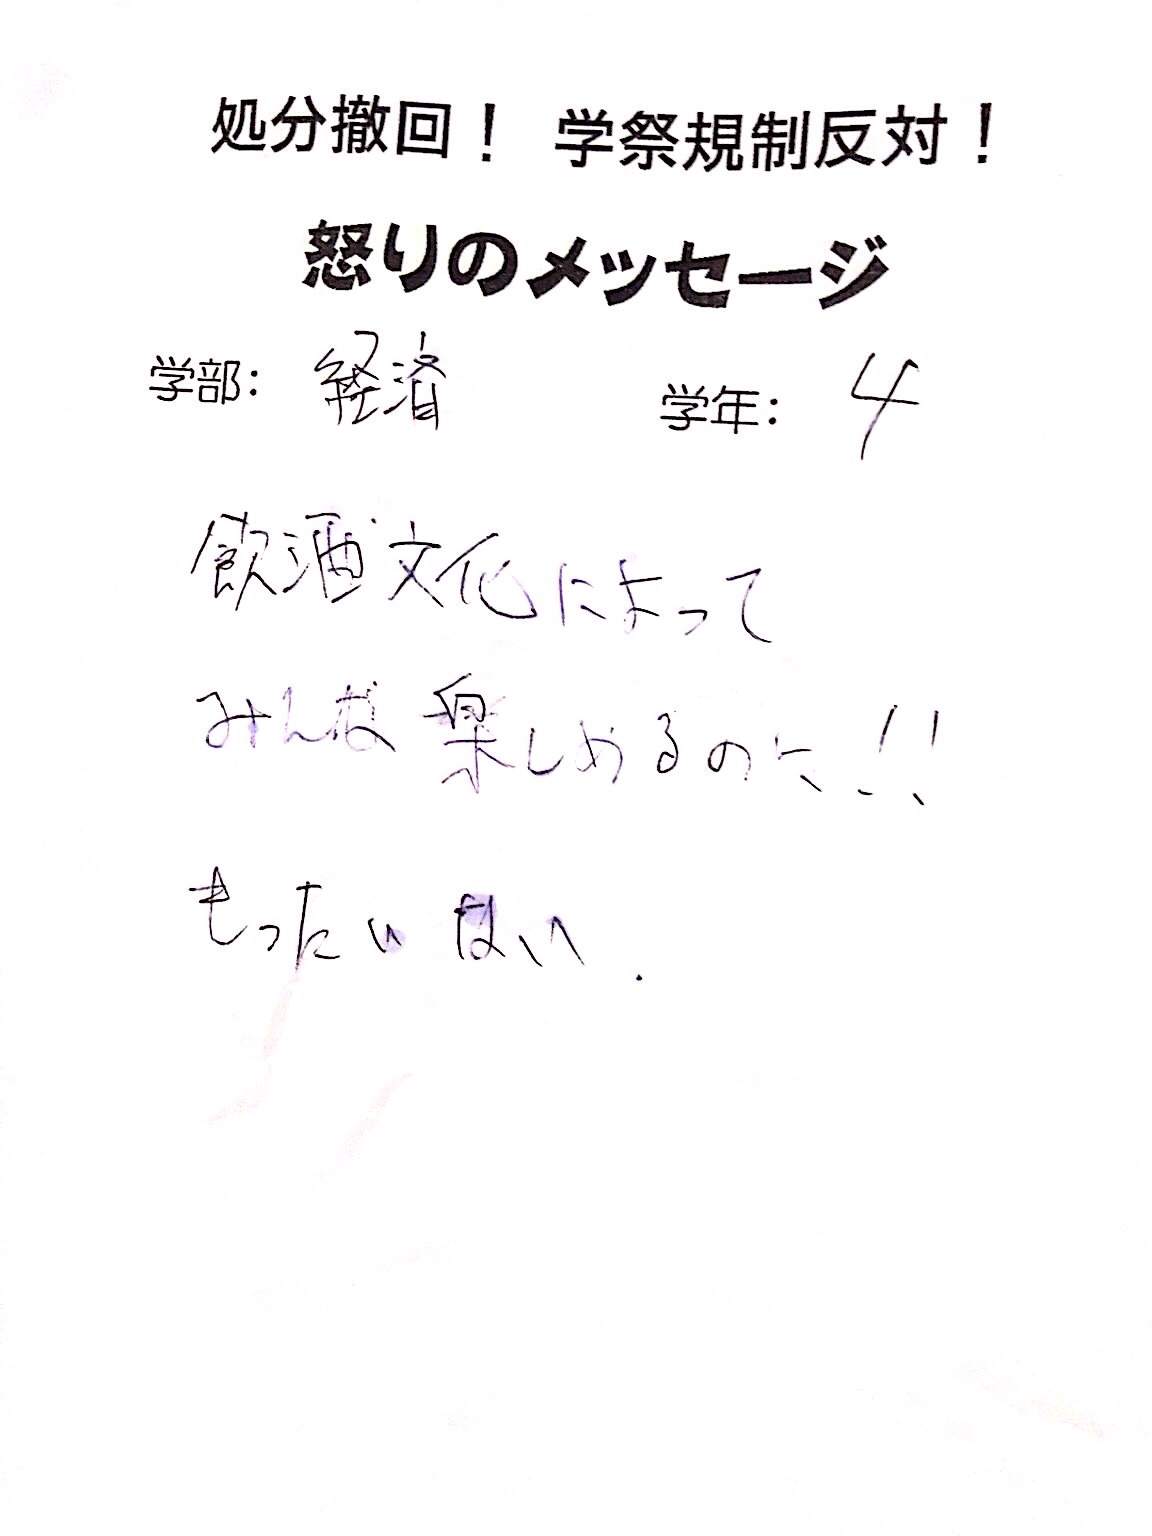 処分撤回！ 学祭規制反対！
怒りのメッセージ
学部： 経済 学年： 4
飲酒文化によって
みんな楽しめるのに!!
もったいない.